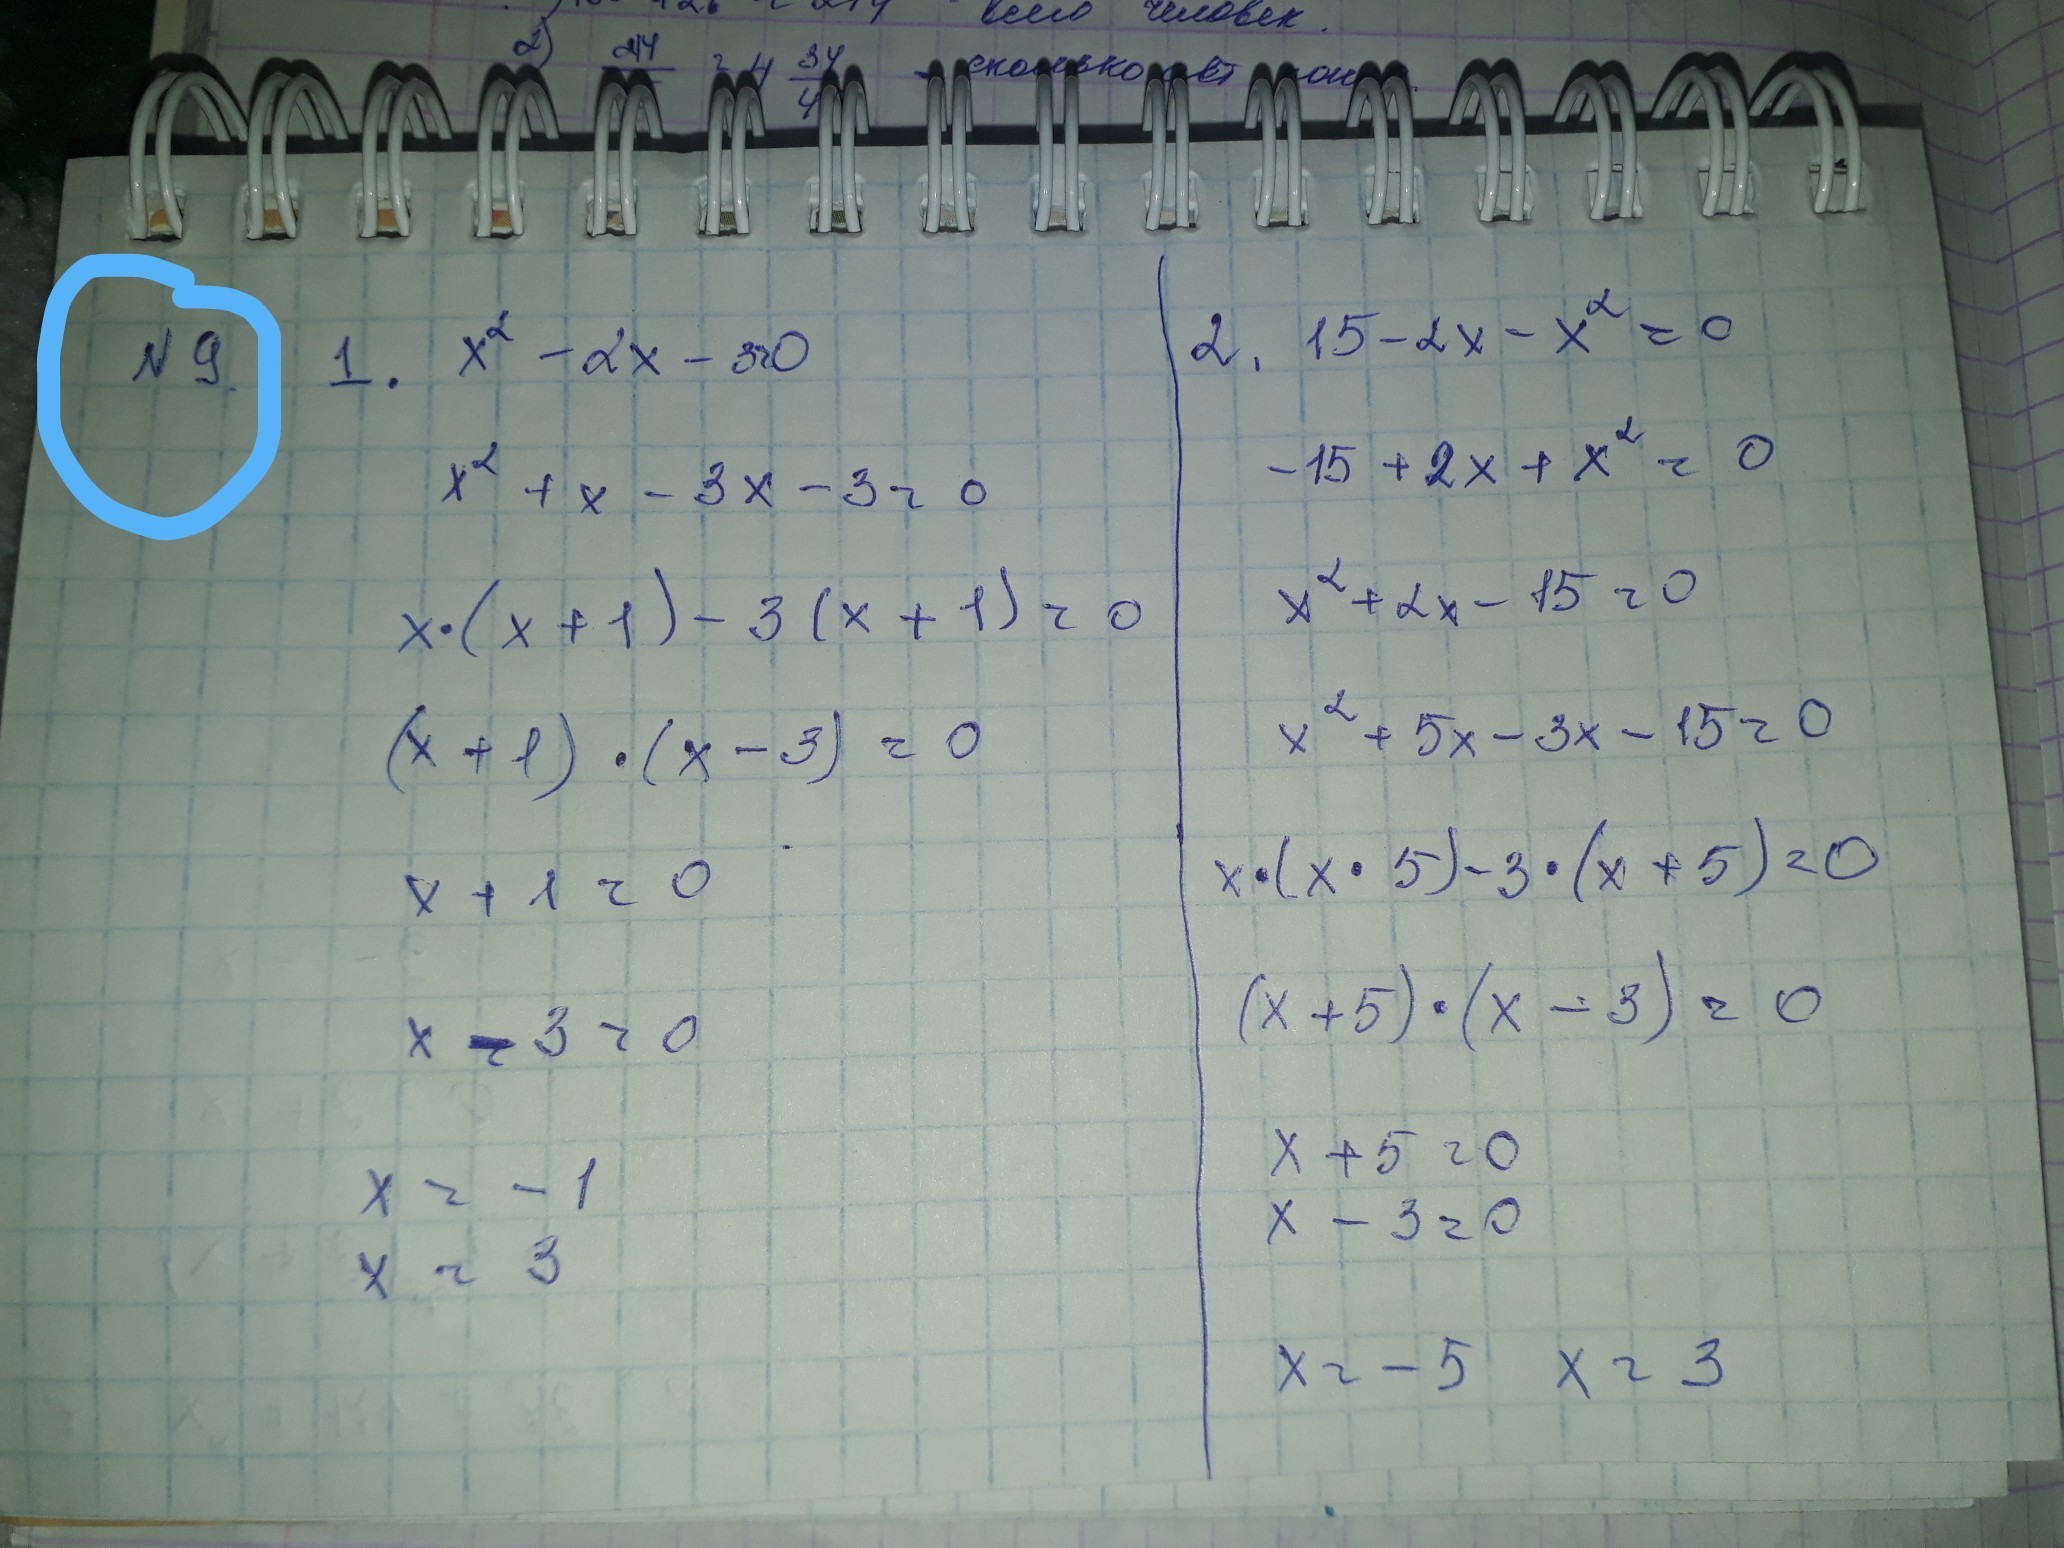 всего человек.
2)
№9
1. x² - 2x - 3=0
x² + x - 3x - 3 = 0
x·(x + 1) - 3 (x + 1) = 0
(x + 1) · (x - 3) = 0
x + 1 = 0
x - 3 = 0
x = - 1
x = 3
2. 15 - 2x - x² = 0
-15 + 2x + x² = 0
x² + 2x - 15 = 0
x² + 5x - 3x - 15 = 0
x·(x · 5) - 3·(x + 5) = 0
(x + 5)·(x - 3) = 0
x + 5 = 0
x - 3 = 0
x = - 5 x = 3